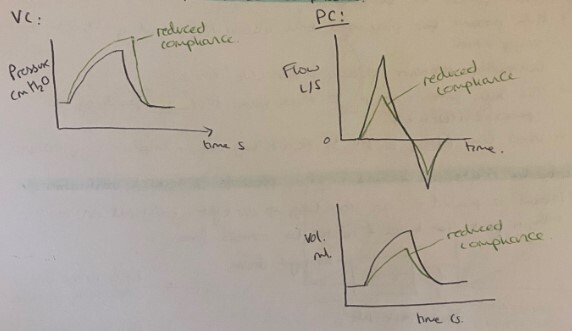 VC:
reduced
compliance.
Pressure
cmH2O
time s
PC:
Flow
L/S
reduced
compliance
0
time.
vol.
ml.
reduced
compliance
time (s.